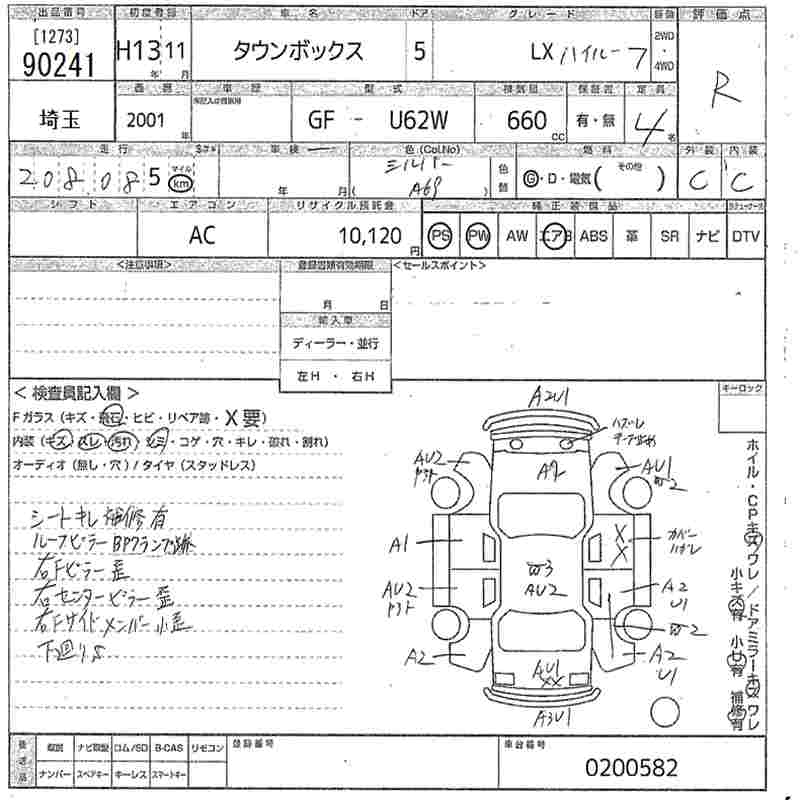 出品番号 初度登録 車名 ドア グレード 評価点
[1273]
90241 H13年 11月 タウンボックス 5 LX ハイルーフ 2WD・4WD R
画歴 車歴 型式 排気量 保証書 定員
埼玉 2001年 GF - U62W 660cc 有・無 4名
走行 車検 色(Col.No) 燃料 外装 内装
208,085 マイル km 年 月 シルバー 色替 G・D・電気( その他 ) C C
( A69 )
シフト エアコン リサイクル預託金 純正装備品
AC 10,120円 PS PW AW エアB ABS 革 SR ナビ DTV
<注意事項> 登録書類有効期限 <セールスポイント>
月 日
輸入車
ディーラー・並行
左H・右H
<検査員記入欄> キーロック
Fガラス(キズ・飛石・ヒビ・リペア跡・X要)
内装(キズ・スレ・汚れ・シミ・コゲ・穴・キレ・破れ・割れ)
オーディオ(無し・穴)/タイヤ(スタッドレス)
シートキレ補修有
ルーフピラーBPクランプ跡
右Fピラー歪
右センターピラー歪
右Fサイドメンバー小歪
下廻りS
A2U1
ハズレ
テープ止め
AU2 A2 AU1
W2
A1 X X カバー
ハガレ
W3
AU2 AU2 A2
U1
W2
A2 AU1 XX A2
U1
A3U1
ホイル・CPキズワレ/ドアミラーキズワレ
小キズ有 小サビ有 補修有
後送品 取説 ナビ取説 ロム/SD B-CAS リモコン 登録番号 車台番号
ナンバー スペアキー キーレス スマートキー 0200582